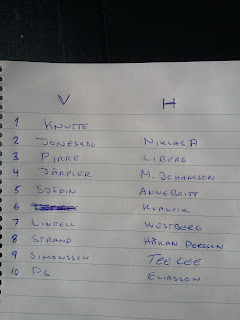 V H
1 KNUTTE
2 JONESKOG NIKLAS.A
3 PIRRE LIBERG
4 JÄRPLER M. JOHANSSON
5 SJÖDIN ANNEBRITT
6 KVALVIK
7 LINDELL WESTBERG
8 STRAND HÅKAN PERSSON
9 SIMONSSON TEE CEE
10 PG ELIASSON